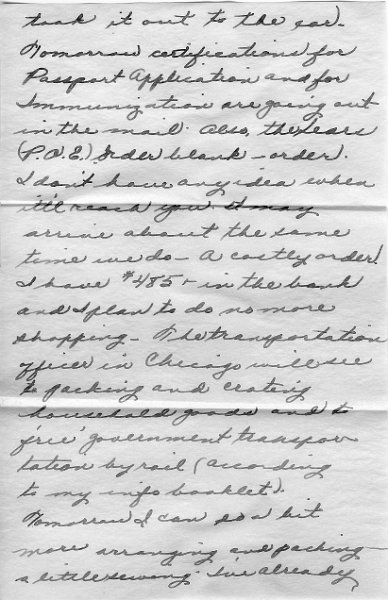 took it out to the car.
Tomorrow certifications for
Passport Application and for
Immunization are going out
in the mail. Also, the Sears
(P.O.E.) Order blank – order).
I don't have any idea when
it'll reach you. It may
arrive about the same
time we do – A costly order!
I have $485 – in the bank
and I plan to do no more
shopping – The transportation
officer in Chicago will see
to packing and crating
household goods and to
'free' government transpor-
tation by rail (according
to my info booklet).
Tomorrow I can do a bit
more arranging and packing –
a little sewing. I've already